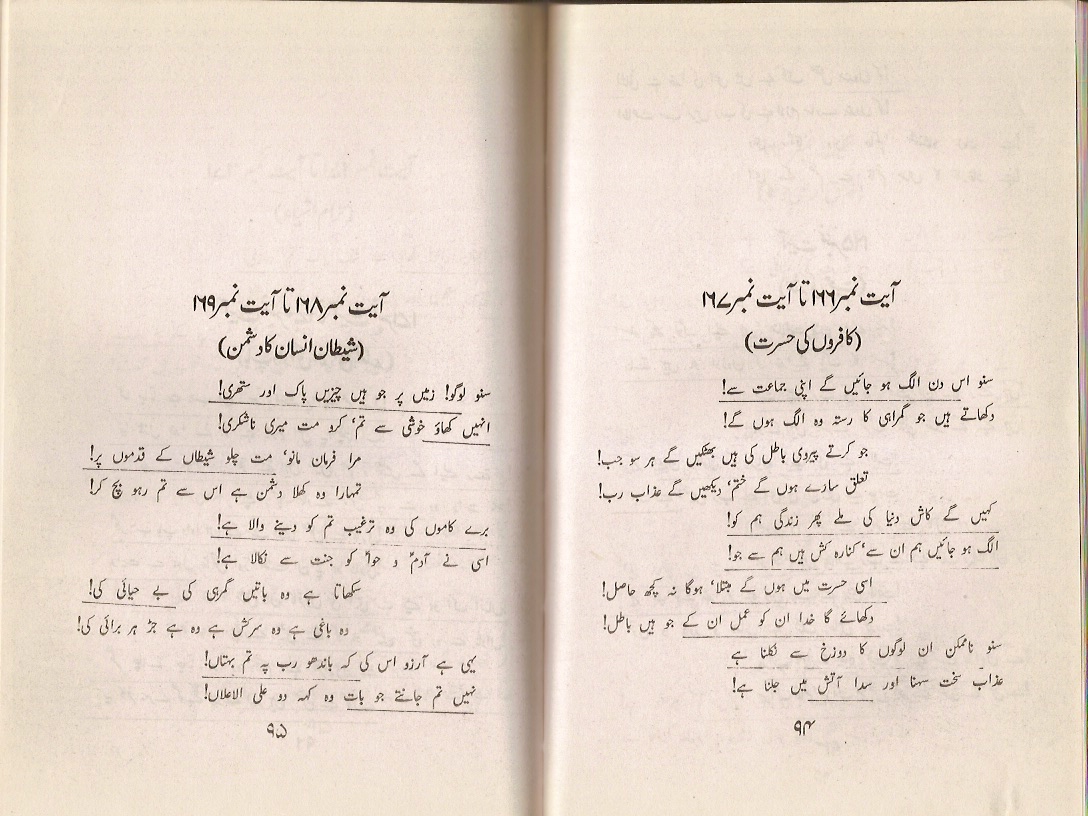 آیت نمبر ۱۶۶ تا آیت نمبر ۱۶۷
(کافروں کی حسرت)
سنو اس دن الگ ہو جائیں گے اپنی جماعت سے!
دکھاتے ہیں جو گمراہی کا رستہ وہ الگ ہوں گے!
جو کرتے پیروی باطل کی ہیں بھٹکیں گے ہر سو جب!
تعلق سارے ہوں گے ختم، دیکھیں گے عذاب رب!
کہیں گے کاش دنیا کی ملے پھر زندگی ہم کو!
الگ ہو جائیں ہم ان سے، کنارہ کش ہیں ہم سے جو!
اسی حسرت میں ہوں گے مبتلا، ہوگا نہ کچھ حاصل!
دکھائے گا خدا ان کو عمل ان کے جو ہیں باطل!
سنو ناممکن ان لوگوں کا دوزخ سے نکلنا ہے
عذاب سخت سہنا اور سدا آتش میں جلنا ہے!
۹۴
آیت نمبر ۱۶۸ تا آیت نمبر ۱۶۹
(شیطان انسان کا دشمن)
سنو لوگو! زمیں پر جو ہیں چیزیں پاک اور ستھری!
انہیں کھاؤ خوشی سے تم، کرو مت میری ناشکری!
مرا فرمان مانو، مت چلو شیطاں کے قدموں پر!
تمہارا وہ کھلا دشمن ہے اس سے تم رہو بچ کر!
برے کاموں کی وہ ترغیب تم کو دینے والا ہے!
اسی نے آدمؑ و حواؑ کو جنت سے نکالا ہے!
سکھاتا ہے وہ باتیں گمرہی کی بے حیائی کی!
وہ باغی ہے وہ سرکش ہے وہ ہے جڑ ہر برائی کی!
یہی ہے آرزو اس کی کہ باندھو رب پہ تم بہتاں!
نہیں تم جانتے جو بات وہ کہہ دو علی الاعلاں!
۹۵